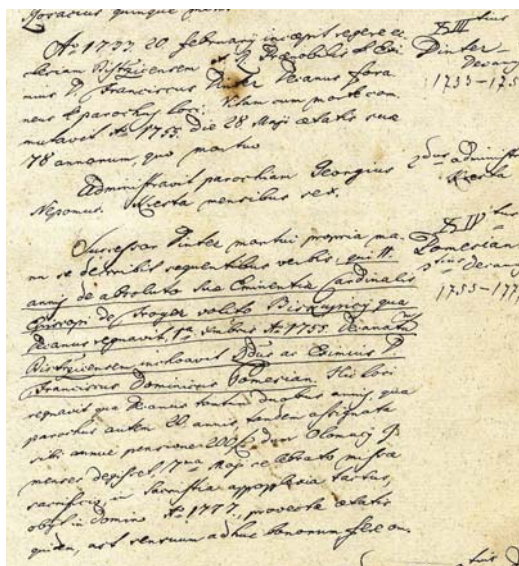 Gosarius quinque
Aº 1733. 20. februarij incæpit regere ec
clesiam Bistricensem Prænobilis et Exi
mius D. Franciscus Pinter Decanus fora
neus et parochus loci. Vitam cum morte com
mutavit Aº 1755. die 28 Maji ætatis suæ
78 annorum, quo mortuo
Administravit parochiam Georgius
Nepomuc. Kresta mensibus sex.
Successor Pinter mortui propria ma-
nu se describit sequentibus verbis: qui
annis de absoluto Suæ Eminentiæ Cardinalis
Episcopi de Troyer volito Biskupicij qua
Decanus regnavit, Aº 1755. Decanatum
Bistricensem inchoavit Rdus ac Eximius D.
Franciscus Dominicus Pomesian Hic loci
regnavit qua Decanus tantum duobus annis, qua
parochus autem 20. annis, tandem assignata
sibi annua pensione 200 dum Olomucij
menses degisset, 7ma Maji celebrato missæ
sacrificio, in sacristia apoplexia tactus,
obijt in Domino Aº 1777, provectæ ætatis
quidem, ast sensuum adhuc bonorum
XIII tius
Pinter
Decanus
1733-175
2dus administr
Kresta
XIV tus
Pomesian
Decanus
1755-177
tus